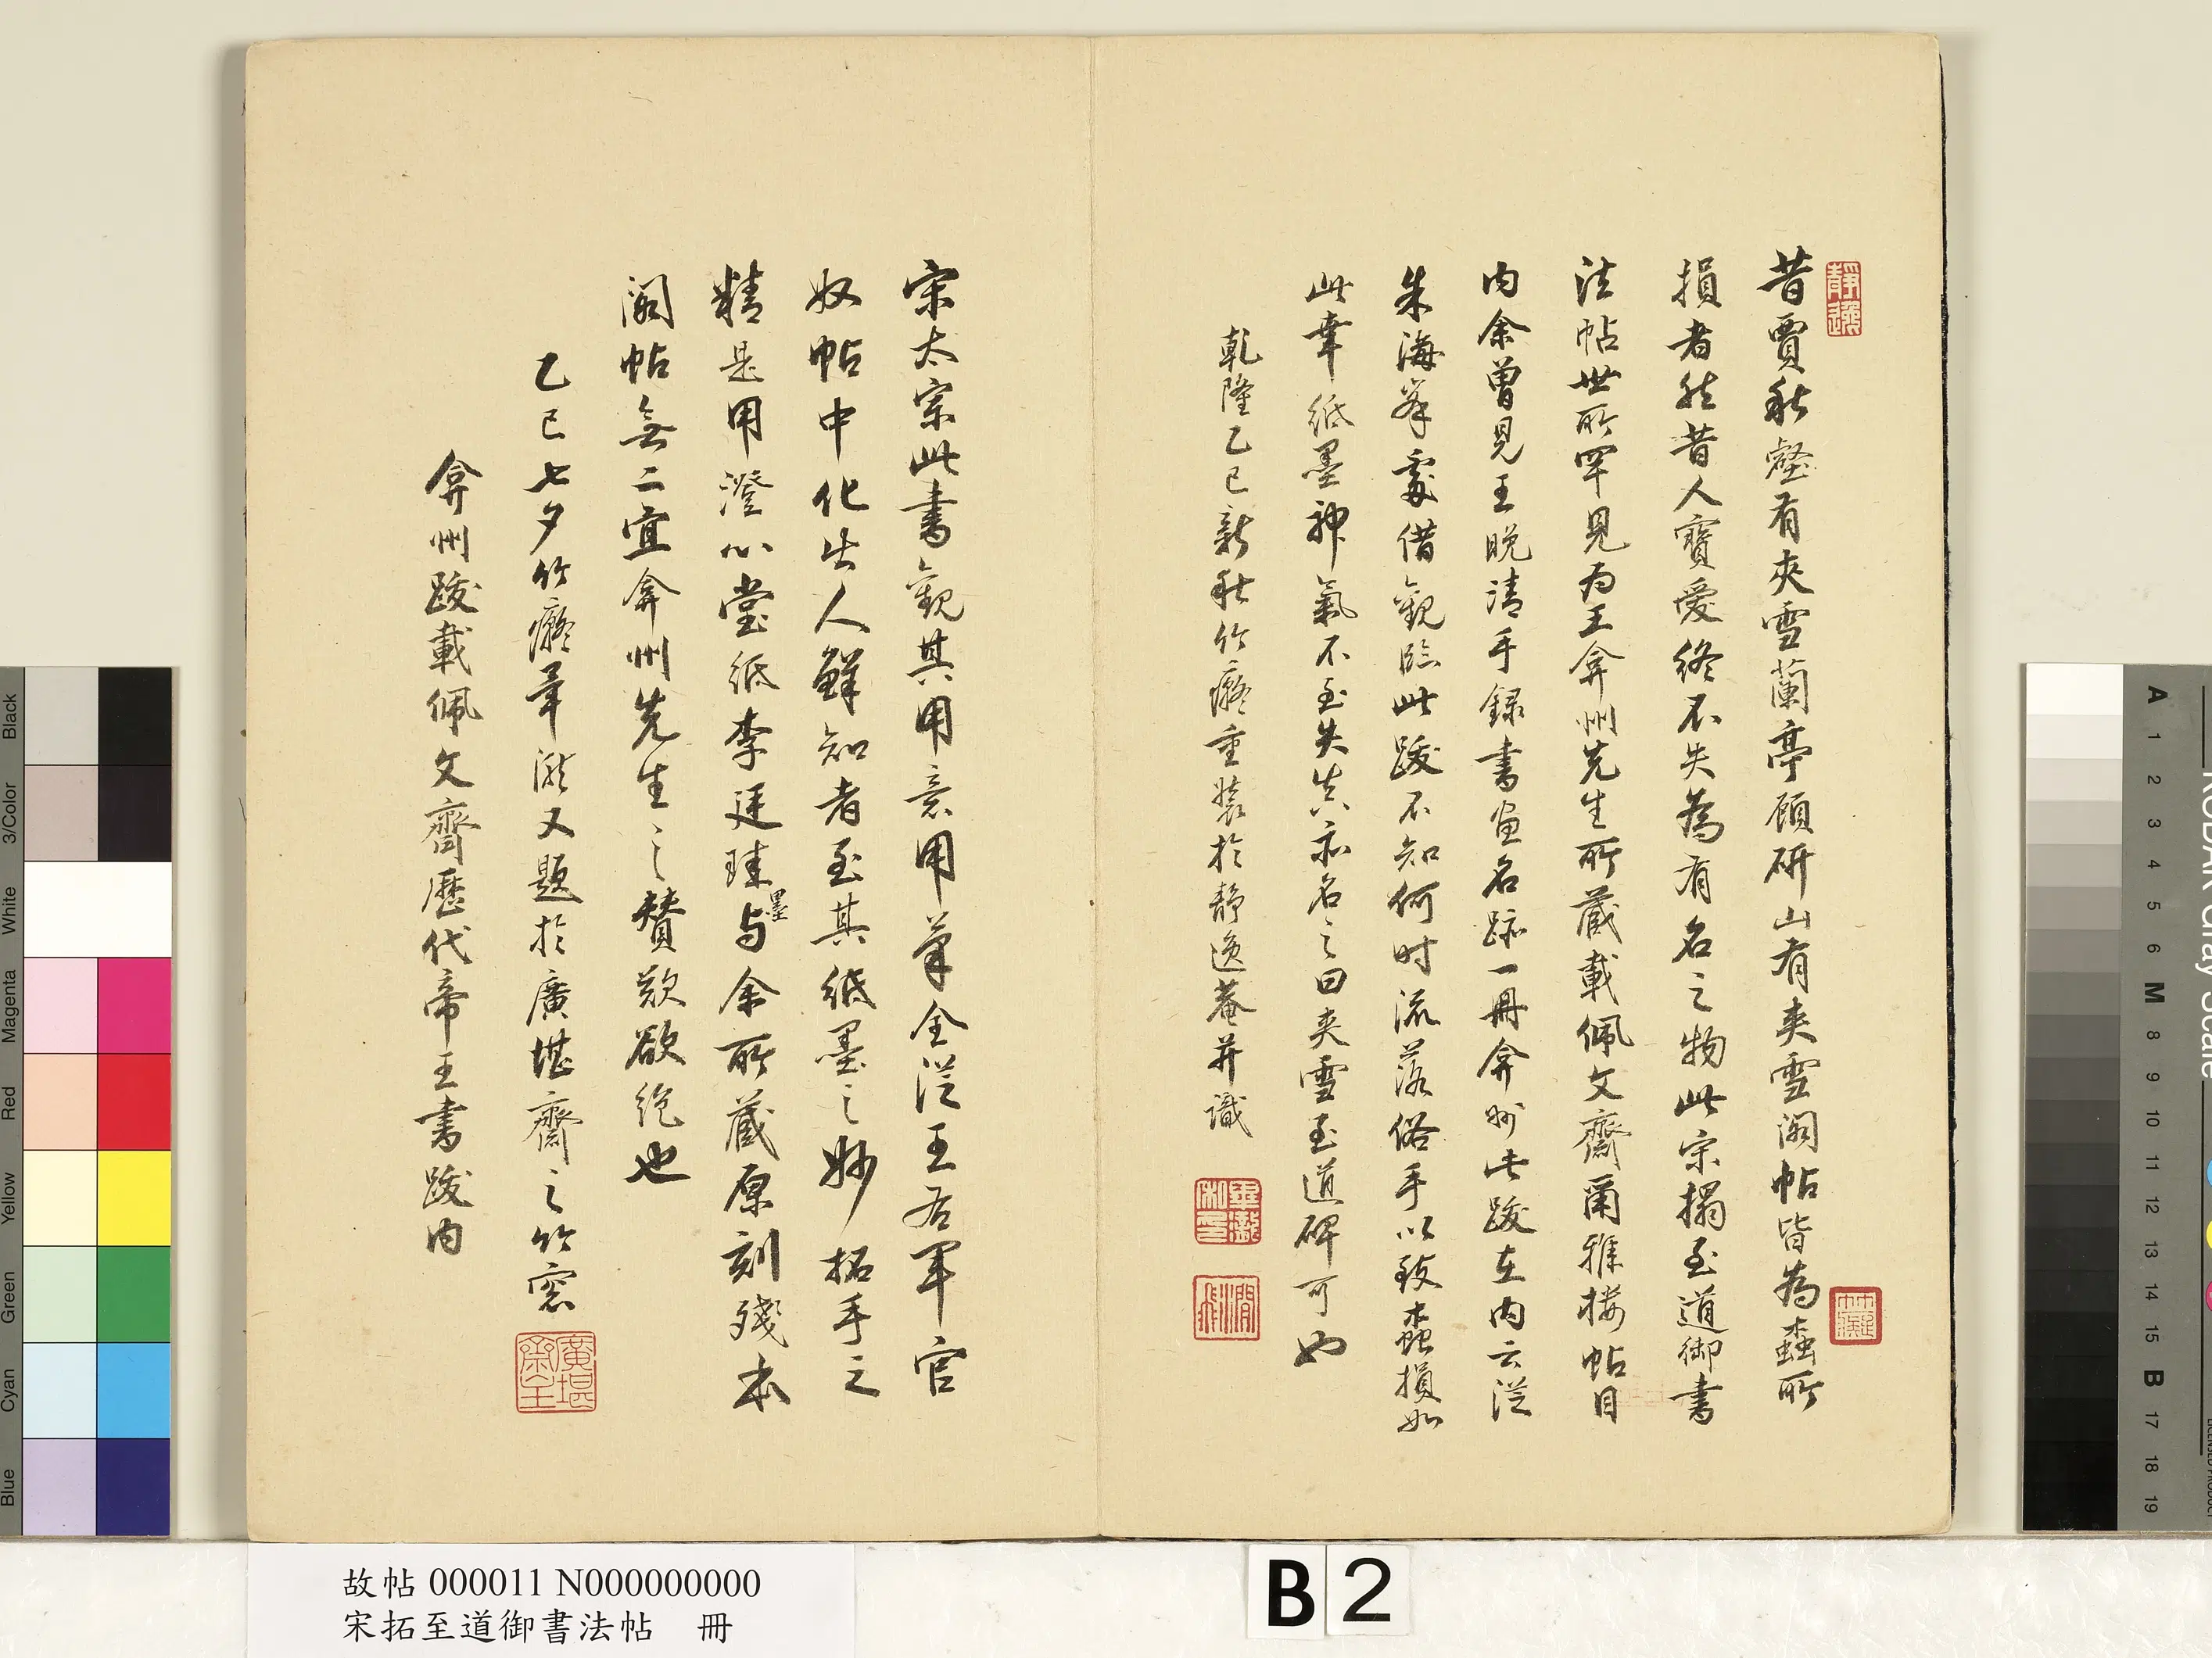 昔賈秋壑有夾雪蘭亭顧研山有夾雪閣帖皆為蠹所
損者然昔人寶愛終不失為有名之物此宋搨至道御書
法帖世所罕見為王弇州先生所藏載佩文齋爾雅樓帖目
內余曾見王晚清手錄書畫名跡一冊弇州此跋在內云從
朱海峯處借觀臨此跋不知何時流落俗手以致蠹損如
此幸紙墨神氣不至失真亦名之曰夾雪至道碑可也
乾隆乙巳新秋竹癡重裝於靜逸菴并識
靜逸
畢瀧
澗飛
竹癡
宋太宗此書觀其用意用筆全從王右軍官
奴帖中化出人鮮知者至其紙墨之妙拓手之
精是用澄心堂紙李廷珪墨与余所藏原刻殘本
閣帖無二宜弇州先生之贊歎欲絕也
乙巳七夕竹癡畢瀧又題於廣堪齋之竹窓
廣堪齋
弇州跋載佩文齋歷代帝王書跋內
故帖 000011 N000000000
宋拓至道御書法帖 冊
B 2
Black
3/Color
White
Magenta
Red
Yellow
Green
Cyan
Blue
A
1
2
3
4
5
6
M
8
9
10
11
12
13
14
15
B
17
18
19